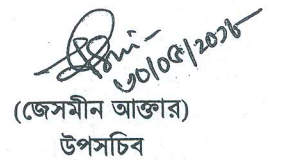 ৩০/০৫/২০১৮
(জেসমীন আক্তার)
উপসচিব